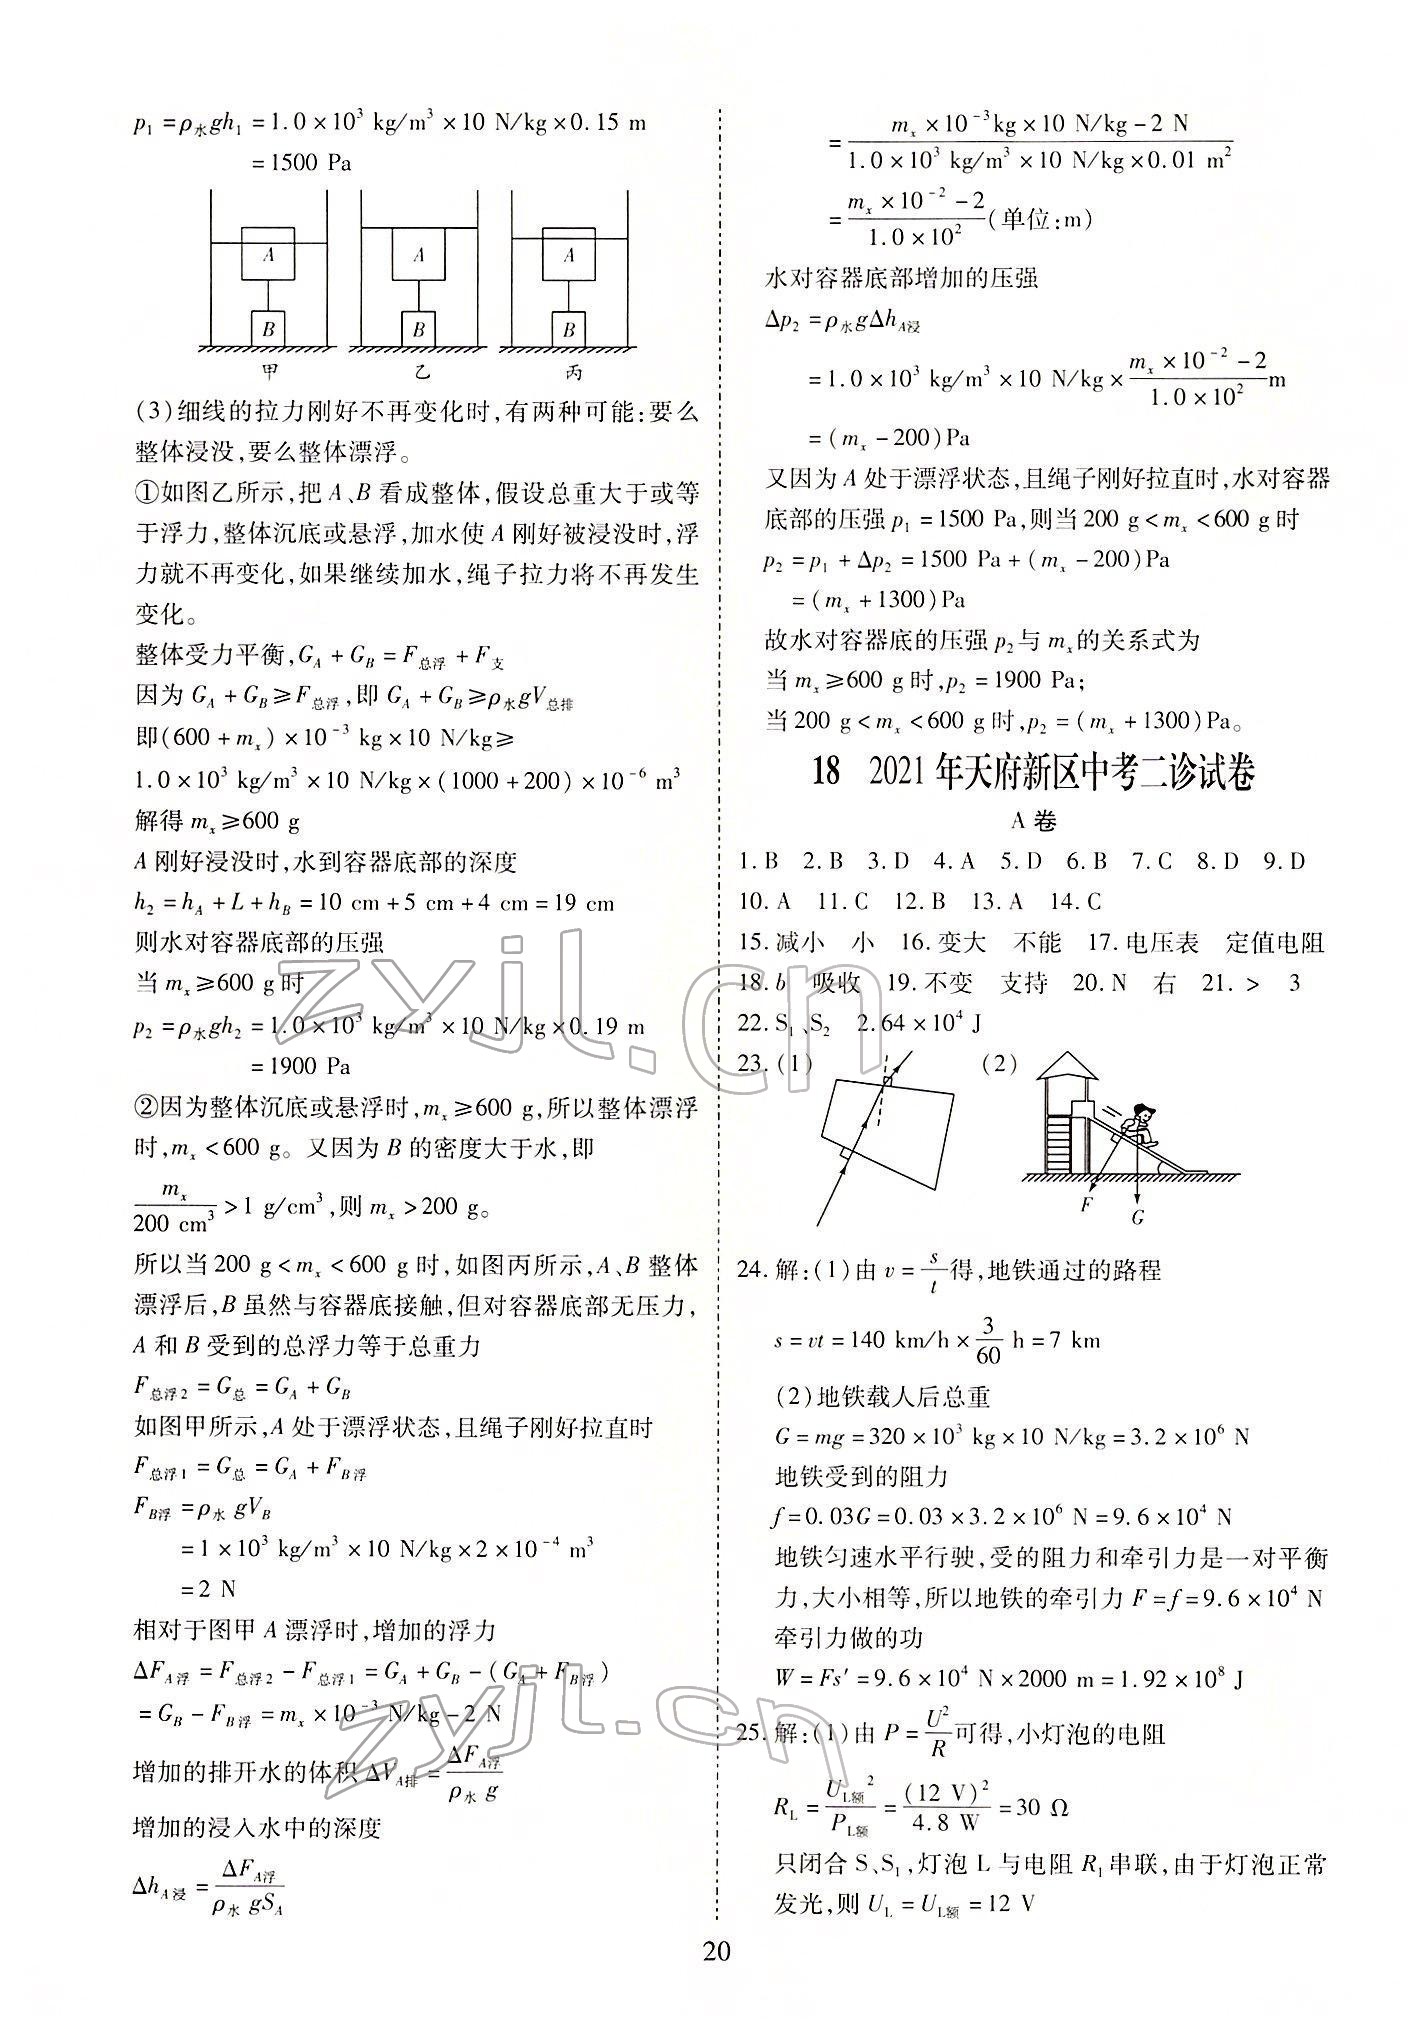 p₁=ρ水gh₁=1.0×10³ kg/m³×10 N/kg×0.15 m
=1500 Pa
A A A
B B B
甲 乙 丙
(3)细线的拉力刚好不再变化时,有两种可能:要么
整体浸没,要么整体漂浮。
①如图乙所示,把 A、B 看成整体,假设总重大于或等
于浮力,整体沉底或悬浮,加水使 A 刚好被浸没时,浮
力就不再变化,如果继续加水,绳子拉力将不再发生
变化。
整体受力平衡,G_A+G_B=F总浮+F支
因为 G_A+G_B≥F总浮,即 G_A+G_B≥ρ水gV总排
即(600+mₓ)×10⁻³ kg×10 N/kg≥
1.0×10³ kg/m³×10 N/kg×(1000+200)×10⁻⁶ m³
解得 mₓ≥600 g
A 刚好浸没时,水到容器底部的深度
h₂=h_A+L+h_B=10 cm+5 cm+4 cm=19 cm
则水对容器底部的压强
当 mₓ≥600 g 时
p₂=ρ水gh₂=1.0×10³ kg/m³×10 N/kg×0.19 m
=1900 Pa
②因为整体沉底或悬浮时,mₓ≥600 g,所以整体漂浮
时,mₓ<600 g。又因为 B 的密度大于水,即
mₓ/200 cm³>1 g/cm³,则 mₓ>200 g。
所以当 200 g<mₓ<600 g 时,如图丙所示,A、B 整体
漂浮后,B 虽然与容器底接触,但对容器底部无压力,
A 和 B 受到的总浮力等于总重力
F总浮2=G总=G_A+G_B
如图甲所示,A 处于漂浮状态,且绳子刚好拉直时
F总浮1=G总=G_A+F_B浮
F_B浮=ρ水 gV_B
=1×10³ kg/m³×10 N/kg×2×10⁻⁴ m³
=2 N
相对于图甲 A 漂浮时,增加的浮力
ΔF_A浮=F总浮2-F总浮1=G_A+G_B-(G_A+F_B浮)
=G_B-F_B浮=mₓ×10⁻³ N/kg-2 N
增加的排开水的体积 ΔV_A排=ΔF_A浮/ρ水 g
增加的浸入水中的深度
Δh_A浸=ΔF_A浮/ρ水 gS_A
=(mₓ×10⁻³kg×10 N/kg-2 N)/(1.0×10³ kg/m³×10 N/kg×0.01 m²)
=(mₓ×10⁻²-2)/(1.0×10²)(单位:m)
水对容器底部增加的压强
Δp₂=ρ水gΔh_A浸
=1.0×10³ kg/m³×10 N/kg×(mₓ×10⁻²-2)/(1.0×10²)m
=(mₓ-200)Pa
又因为 A 处于漂浮状态,且绳子刚好拉直时,水对容器
底部的压强 p₁=1500 Pa,则当 200 g<mₓ<600 g 时
p₂=p₁+Δp₂=1500 Pa+(mₓ-200)Pa
=(mₓ+1300)Pa
故水对容器底的压强 p₂与 mₓ的关系式为
当 mₓ≥600 g 时,p₂=1900 Pa;
当 200 g<mₓ<600 g 时,p₂=(mₓ+1300)Pa。
18 2021年天府新区中考二诊试卷
A 卷
1.B 2.B 3.D 4.A 5.D 6.B 7.C 8.D 9.D
10.A 11.C 12.B 13.A 14.C
15.减小 小 16.变大 不能 17.电压表 定值电阻
18.b 吸收 19.不变 支持 20.N 右 21.> 3
22.S₁、S₂ 2.64×10⁴ J
23.(1) (2)
F
G
24.解:(1)由 v=s/t得,地铁通过的路程
s=vt=140 km/h×3/60 h=7 km
(2)地铁载人后总重
G=mg=320×10³ kg×10 N/kg=3.2×10⁶ N
地铁受到的阻力
f=0.03G=0.03×3.2×10⁶ N=9.6×10⁴ N
地铁匀速水平行驶,受的阻力和牵引力是一对平衡
力,大小相等,所以地铁的牵引力 F=f=9.6×10⁴ N
牵引力做的功
W=Fs′=9.6×10⁴ N×2000 m=1.92×10⁸ J
25.解:(1)由 P=U²/R可得,小灯泡的电阻
R_L=U_L额²/P_L额=(12 V)²/4.8 W=30 Ω
只闭合 S、S₁,灯泡 L 与电阻 R₁串联,由于灯泡正常
发光,则 U_L=U_L额=12 V
20
zyjl.cn
zyjl.cn